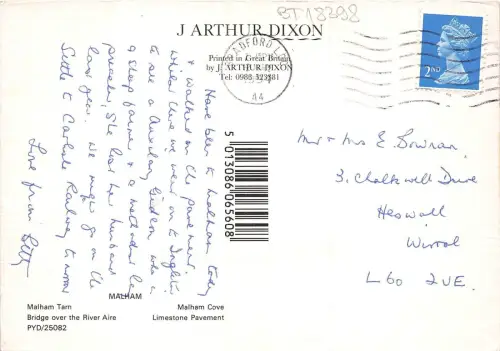 BT18298
J ARTHUR DIXON
Printed in Great Britain
by J. ARTHUR DIXON
Tel: 0983 523381
ADFORD
44
2ND
Have been to Malham today
& walked on the pavement.
whilst there we went on to
to see a Auxiliary Gideon who is
a sheep farmer & a methodist lay
preacher, She lost her husband
last year. We might go on the
Settle to Carlisle Railway to-morrow
Love from Betty
Mr & Mrs E Bowran.
3. Chalkwell Drive
Heswall
Wirral
L60 2UE.
5 013086 065608
MALHAM
Malham Tarn
Malham Cove
Bridge over the River Aire
Limestone Pavement
PYD/25082